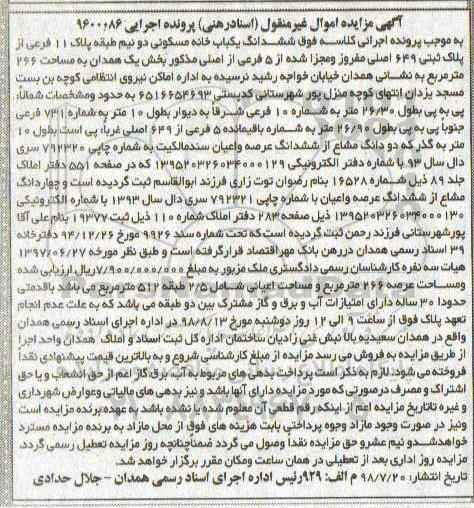 آگهی مزایده اموال غیرمنقول (اسنادرهنی) پرونده اجرایی ۹۶۰۰۰۸۶
به موجب پرونده اجرائی کلاسه فوق ششدانگ یکباب خانه مسکونی دو نیم طبقه پلاک ۱۱ فرعی از
پلاک ثبتی ۶۴۹ اصلی مفروز ومجزا شده از ۵ فرعی از اصلی مذکور بخش یک همدان به مساحت ۲۶۶
مترمربع به نشانی همدان خیابان خواجه رشید نرسیده به اداره اماکن نیروی انتظامی کوچه بن بست
مسجد یزدان انتهای کوچه منزل پور شهرستانی کدپستی ۶۵۱۶۶۵۴۶۹۳ به حدود ومشخصات شمالا:
پی به پی بطول ۲۶/۳۰ متر به شماره ۱۰ فرعی شرقا به دیوار بطول ۱۰ متر به شماره ۷۳۱ فرعی
جنوبا پی به پی بطول ۲۶/۹۰ متر به شماره باقیمانده ۵ فرعی از ۶۴۹ اصلی غربا: پی است بطول ۱۰
متر به گذر که دو دانگ مشاع از ششدانگ عرصه واعیان سندمالکیت به شماره چاپی ۷۹۲۳۲۰ سری
دال سال ۹۳ با شماره دفتر الکترونیکی ۱۳۹۵۲۰۳۲۶۰۳۴۰۰۰۱۲۹ که در صفحه ۵۵۱ دفتر املاک
جلد ۸۹ ذیل شماره ۱۶۵۲۸ بنام رضوان توت زاری فرزند ابوالقاسم ثبت گردیده است و چهاردانگ
مشاع از ششدانگ عرصه واعیان با شماره چاپی ۷۹۲۳۲۱ سری دال سال ۱۳۹۳ با شماره الکترونیکی
۱۳۹۵۲۰۳۲۶۰۳۴۰۰۰۱۳۰ ذیل صفحه ۲۸۴ دفتر املاک شماره ۱۱۰ ذیل ثبت ۱۹۳۷۷ بنام علی آقا
پورشهرستانی فرزند رحمن ثبت گردیده است که تحت شماره سند ۹۹۲۶ مورخ ۹۴/۱۲/۲۶ دفترخانه
۳۹ اسناد رسمی همدان دررهن بانک مهراقتصاد قرارگرفته است و طبق نظر مورخه ۱۳۹۷/۰۶/۲۷
هیات سه نفره کارشناسان رسمی دادگستری ملک مزبور به مبلغ ۷/۹۰۰/۰۰۰/۰۰۰ریال ارزیابی شده
ومساحت عرصه ۲۶۶ مترمربع و مساحت اعیانی شامل ۲/۵ طبقه ۵۱۲ مترمربع می باشد باقدمتی
حدودا ۳۰ ساله دارای امتیازات آب و برق و گاز مشترک بین دو طبقه می باشد که به علت عدم انجام
تعهد پلاک فوق از ساعت ۹ الی ۱۲ روز دوشنبه مورخ ۹۸/۸/۱۳ در اداره اجرای اسناد رسمی همدان
واقع در همدان سعیدیه بالا نبش غنی زادیان ساختمان اداره کل ثبت اسناد و املاک همدان واحد اجرا
از طریق مزایده به فروش می رسد مزایده از مبلغ کارشناسی شروع و به بالاترین قیمت پیشنهادی نقدا
فروخته می شود. لازم به ذکر است پرداخت بدهی های مربوط به آب برق گاز اعم از حق انشعاب و یا حق
اشتراک و مصرف درصورتی که مورد مزایده دارای آنها باشد و نیز بدهی های مالیاتی وعوارض شهرداری
و غیره تاتاریخ مزایده اعم از اینکه رقم قطعی آن معلوم شده یا نشده باشد به عهده برنده مزایده است
ونیز در صورت وجود مازاد وجوه پرداختی بابت هزینه های فوق از محل مازاد به برنده مزایده مسترد
خواهدشد و نیم عشرو حق مزایده نقدا وصول می گردد ضمناچنانچه روز مزایده تعطیل رسمی گردد.
مزایده روز اداری بعد از تعطیلی در همان ساعت ومکان مقرر برگزار خواهد شد.
تاریخ انتشار: ۹۸/۷/۲۰ م الف: ۹۲۹رئیس اداره اجرای اسناد رسمی همدان - جلال حدادی